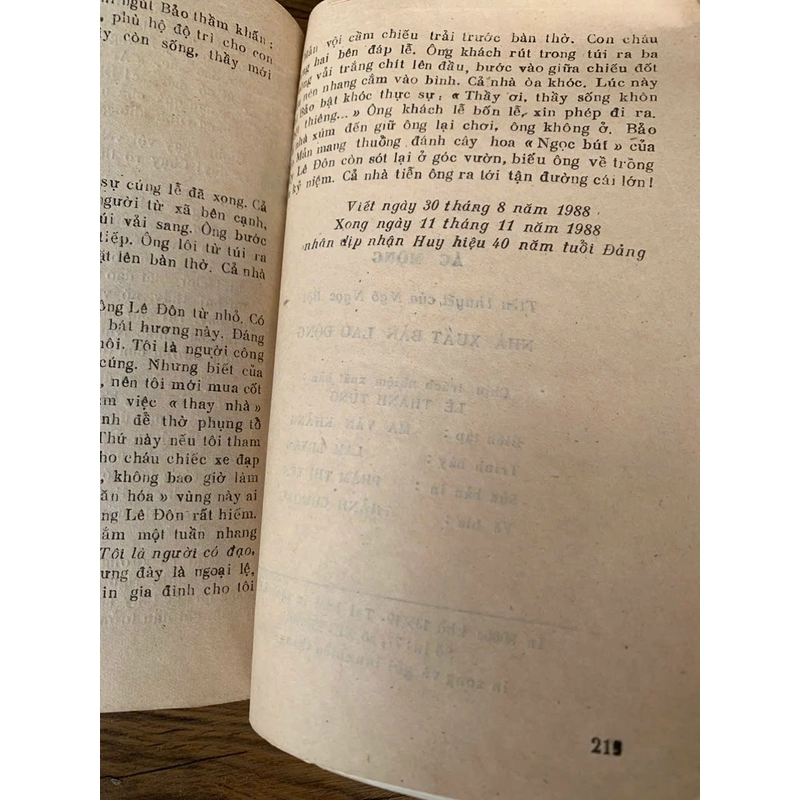 ngút Bảo thầm khấn:
phù hộ độ trì cho con
còn sống, thầy mới
sự cúng lễ đã xong. Cả
người từ xã bên cạnh,
túi vải sang. Ông bước
tiếp. Ông lôi từ túi ra
đặt lên bàn thờ. Cả nhà
ông Lê Đôn từ nhỏ. Có
bát hương này. Đáng
Tôi là người công
cúng. Nhưng biết của
nên tôi mới mua cốt
việc « thay nhà »
để thờ phụng tổ
Thứ này nếu tôi tham
cho cháu chiếc xe đạp
không bao giờ làm
hóa » vùng này ai
Lê Đôn rất hiếm.
một tuần nhang
Tôi là người có đạo,
đây là ngoại lệ,
gia đình cho tôi
vội cầm chiếu trải trước bàn thờ. Con cháu
hai bên đáp lễ. Ông khách rút trong túi ra ba
vải trắng chít lên đầu, bước vào giữa chiếu đốt
nén nhang cắm vào bình. Cả nhà òa khóc. Lúc này
Bảo bật khóc thực sự: « Thầy ơi, thầy sống khôn
thiêng... » Ông khách lễ bốn lễ, xin phép đi ra.
xúm đến giữ ông lại chơi, ông không ở. Bảo
Mẫn mang thuổng đánh cây hoa « Ngọc bút » của
Lê Đôn còn sót lại ở góc vườn, biếu ông về trồng
kỷ niệm. Cả nhà tiễn ông ra tới tận đường cái lớn!
Viết ngày 30 tháng 8 năm 1988
Xong ngày 11 tháng 11 năm 1988
nhân dịp nhận Huy hiệu 40 năm tuổi Đảng
ÁC MỘNG
Tiểu thuyết của Ngô Ngọc Bội
NHÀ XUẤT BẢN LAO ĐỘNG
Chịu trách nhiệm xuất bản
LÊ THANH TÙNG
Biên tập : MA VĂN KHÁNG
Trình bày :
Sửa bản in :
Vẽ bìa :